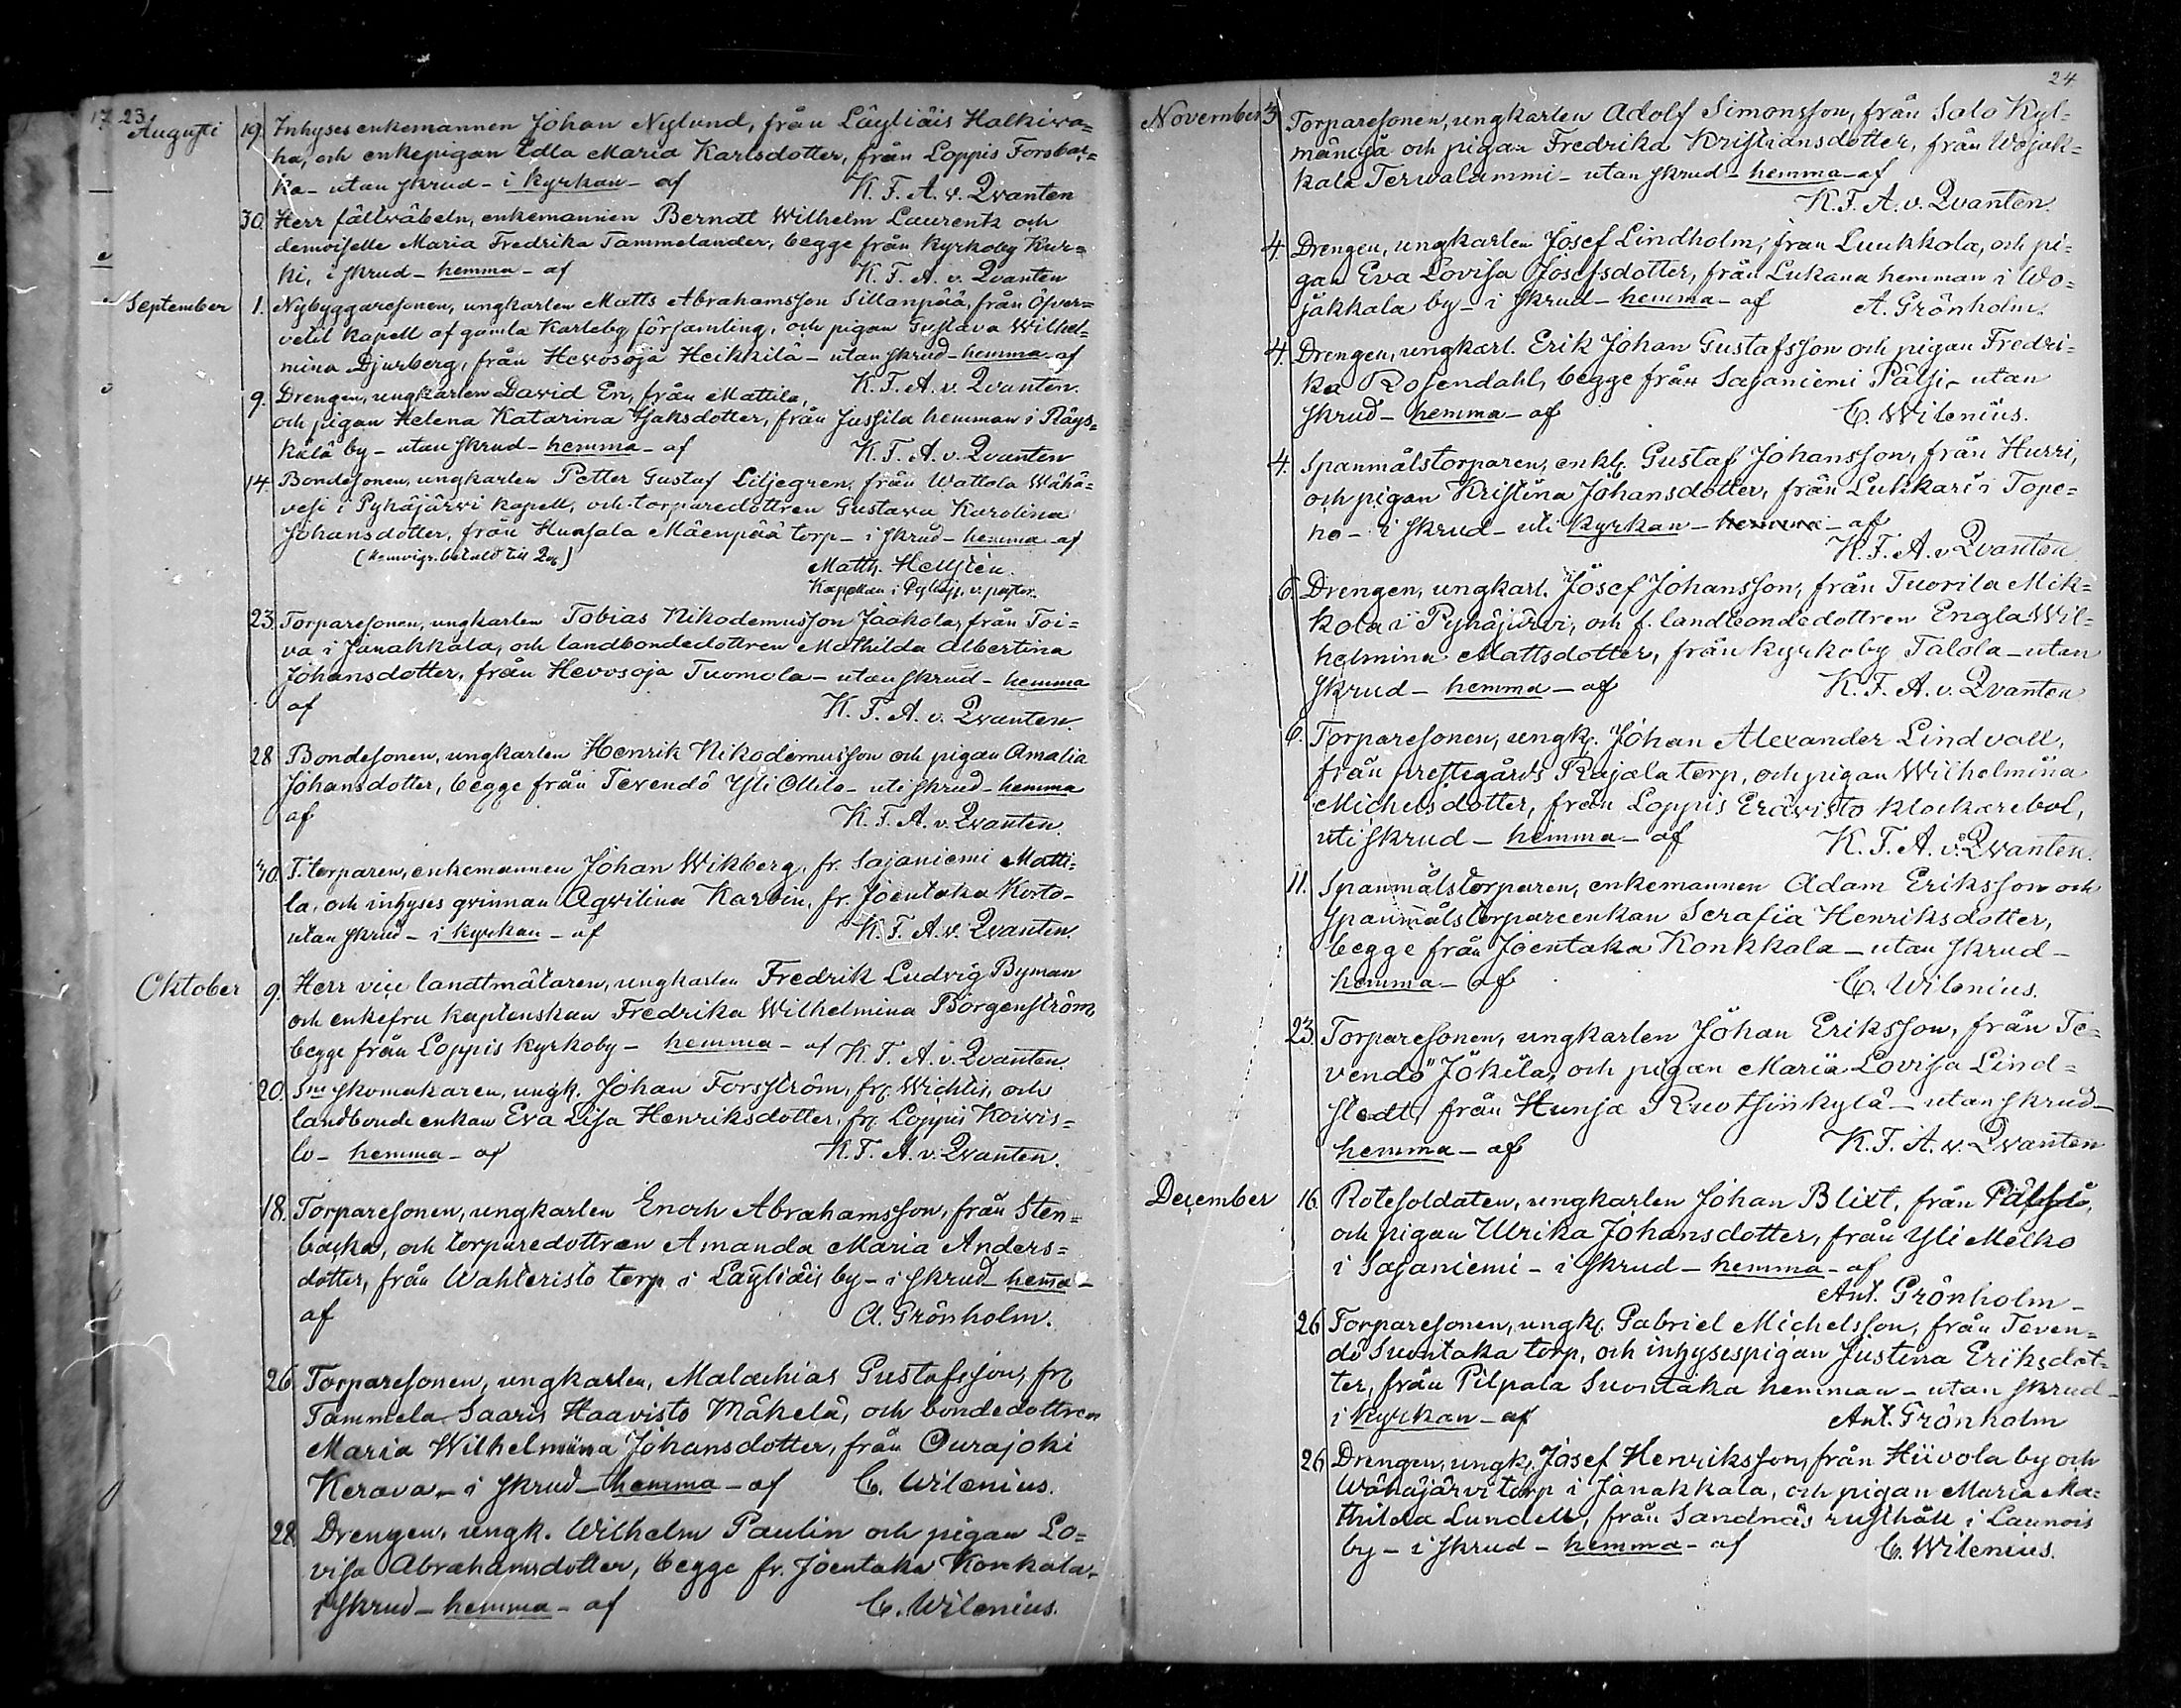 23
Augusti 19. Inhyses enkemannen Johan Nylund, från Läyliäis Halkiwa=
ha, och enkepigan Edla Maria Karlsdotter, från Loppis Forsbac=
ka – utan skrud – i kyrkan – af K. F. A. v. Qvanten
30. Herr fältväbeln, enkemannen Berndt Wilhelm Laurentz och
demoiselle Maria Fredrika Tammelander, begge från Kyrkoby Kur=
ki, i skrud – hemma – af K. F. A. v. Qvanten
September 1. Nybyggaresonen, ungkarlen Matts Abrahamsson Sillanpää, från Öfver=
vetil kapell af gamla Karleby församling, och pigan Gustava Wilhel=
mina Djurberg, från Hevosoja Heikkilä – utan skrud – hemma – af
K. F. A. v. Qvanten.
9. Drengen, ungkarlen David En, från Mattila,
och pigan Helena Katarina Isaksdotter, från Jussila hemman i Räys=
kälä by – utan skrud – hemma – af K. F. A. v. Qvanten
14. Bondesonen, ungkarlen Petter Gustaf Liljegren, från Wattola Wähä=
vesi i Pyhäjärvi kapell, och torparedottren Gustava Karolina
Johansdotter, från Hunsala Mäenpää torp – i skrud – hemma – af
(Hemvigs. betald till
Matth. Hellsten.
Kapellan i Pyhäj. v. pastor.
23. Torparesonen, ungkarlen Tobias Nikodemusson Jaakola, från Toi=
va i Janakkala, och landbondedottren Mathilda Albertina
Johansdotter, från Hevosoja Tuomola – utan skrud – hemma
af K. F. A. v. Qvanten.
28 Bondesonen, ungkarlen Henrik Nikodemusson och pigan Amalia
Johansdotter, begge från Tevendö Yli Ollila – uti skrud – hemma
af K. F. A. v. Qvanten.
30. T. torparen, enkemannen Johan Wikberg, fr. Sajaniemi Matti=
la, och inhyses qvinnan Aqvilina Karvin, fr. Joentaka Korto –
utan skrud – i kyrkan – af K. F. A. v. Qvanten.
Oktober 9. Herr vice landtmätaren, ungkarlen Fredrik Ludvig Byman
och enkefru kaptenskan Fredrika Wilhelmina Borgenström,
begge från Loppis kyrkoby – hemma – af K. F. A. v. Qvanten.
20. Sne skomakaren, ungk. Johan Forsström, fr. Wichtis, och
landbonde enkan Eva Lisa Henriksdotter, fr. Loppis Koivis=
to – hemma – af K. F. A. v. Qvanten.
18. Torparesonen, ungkarlen Enoch Abrahamsson, från Sten=
backa, och torparedottren Amanda Maria Anders=
dotter, från Wahteristo torp i Läyliäis by – i skrud – hemma –
af A. Grönholm.
26 Torparesonen, ungkarlen, Malachias Gustafsson, fr.
Tammela Saaris Haavisto Mäkelä, och bondedottren
Maria Wilhelmina Johansdotter, från Ourajoki
Kerava – i skrud – hemma – af C. Wilenius.
28. Drengen, ungk. Wilhelm Paulin och pigan Lo=
visa Abrahamsdotter, begge fr. Joentaka Konkala –
i skrud – hemma – af C. Wilenius.
24
November 3. Torparesonen, ungkarlen Adolf Simonsson, från Salo Kyl=
mänoja och pigan Fredrika Kristiansdotter, från Wojak=
kala Terwalammi – utan skrud – hemma – af
K. F. A. v. Qvanten.
4. Drengen, ungkarlen Josef Lindholm, från Luukkola, och pi=
gan Eva Lovisa Josefsdotter, från Lukana hemman i Wo=
jakkala by – i skrud – hemma – af A. Grönholm.
4. Drengen, ungkarl. Erik Johan Gustafsson och pigan Fredri=
ka Rosendahl, begge från Sajaniemi Pälsi – utan
skrud – hemma – af C. Wilenius.
4. Spanmålstorparen, enkl. Gustaf Johansson, från Hurri,
och pigan Kristina Johansdotter, från Lukkari i Tope=
no – i skrud – uti kyrkan – hemma – af
K. F. A. v. Qvanten
6. Drengen, ungkarl. Josef Johansson, från Tuorila Mik=
kola i Pyhäjärvi, och f. landbondedottren Engla Wil=
helmina Mattsdotter, från kyrkoby Talola – utan
skrud – hemma – af K. F. A. v. Qvanten
6. Torparesonen, ungk. Johan Alexander Lindvall,
från prestegårds Rajala torp, och pigan Wilhelmina
Michelsdotter, från Loppis Erävisto klockarebol,
uti skrud – hemma – af K. F. A. v. Qvanten.
11. Spanmålstorparen, enkemannen Adam Eriksson och
spanmålstorpareenkan Serafia Henriksdotter,
begge från Joentaka Konkkala – utan skrud –
hemma – af C. Wilenius.
23. Torparesonen, ungkarlen Johan Eriksson, från Te=
vendö Jokila, och pigan Maria Lovisa Lind=
stedt, från Hunsa Ruotsinkylä – utan skrud –
hemma – af K. F. A. v. Qvanten
December 16. Rotesoldaten, ungkarlen Johan Blixt, från Pälsi,
och pigan Ulrika Johansdotter, från Yli Melko
i Sajaniemi – i skrud – hemma – af
Ant. Grönholm –
26 Torparesonen, ungk. Gabriel Michelsson, från Teven=
dö Suontaka torp, och inhysespigan Justina Eriksdot=
ter, från Pilpala Suontaka hemman – utan skrud –
i kyrkan – af Ant. Grönholm
26 Drengen, ungk. Josef Henriksson, från Hiivola by och
Wähäjärvi torp i Janakkala, och pigan Maria Ma=
thilda Lundell, från Sandnäs rusthåll i Launois
by – i skrud – hemma – af C. Wilenius.